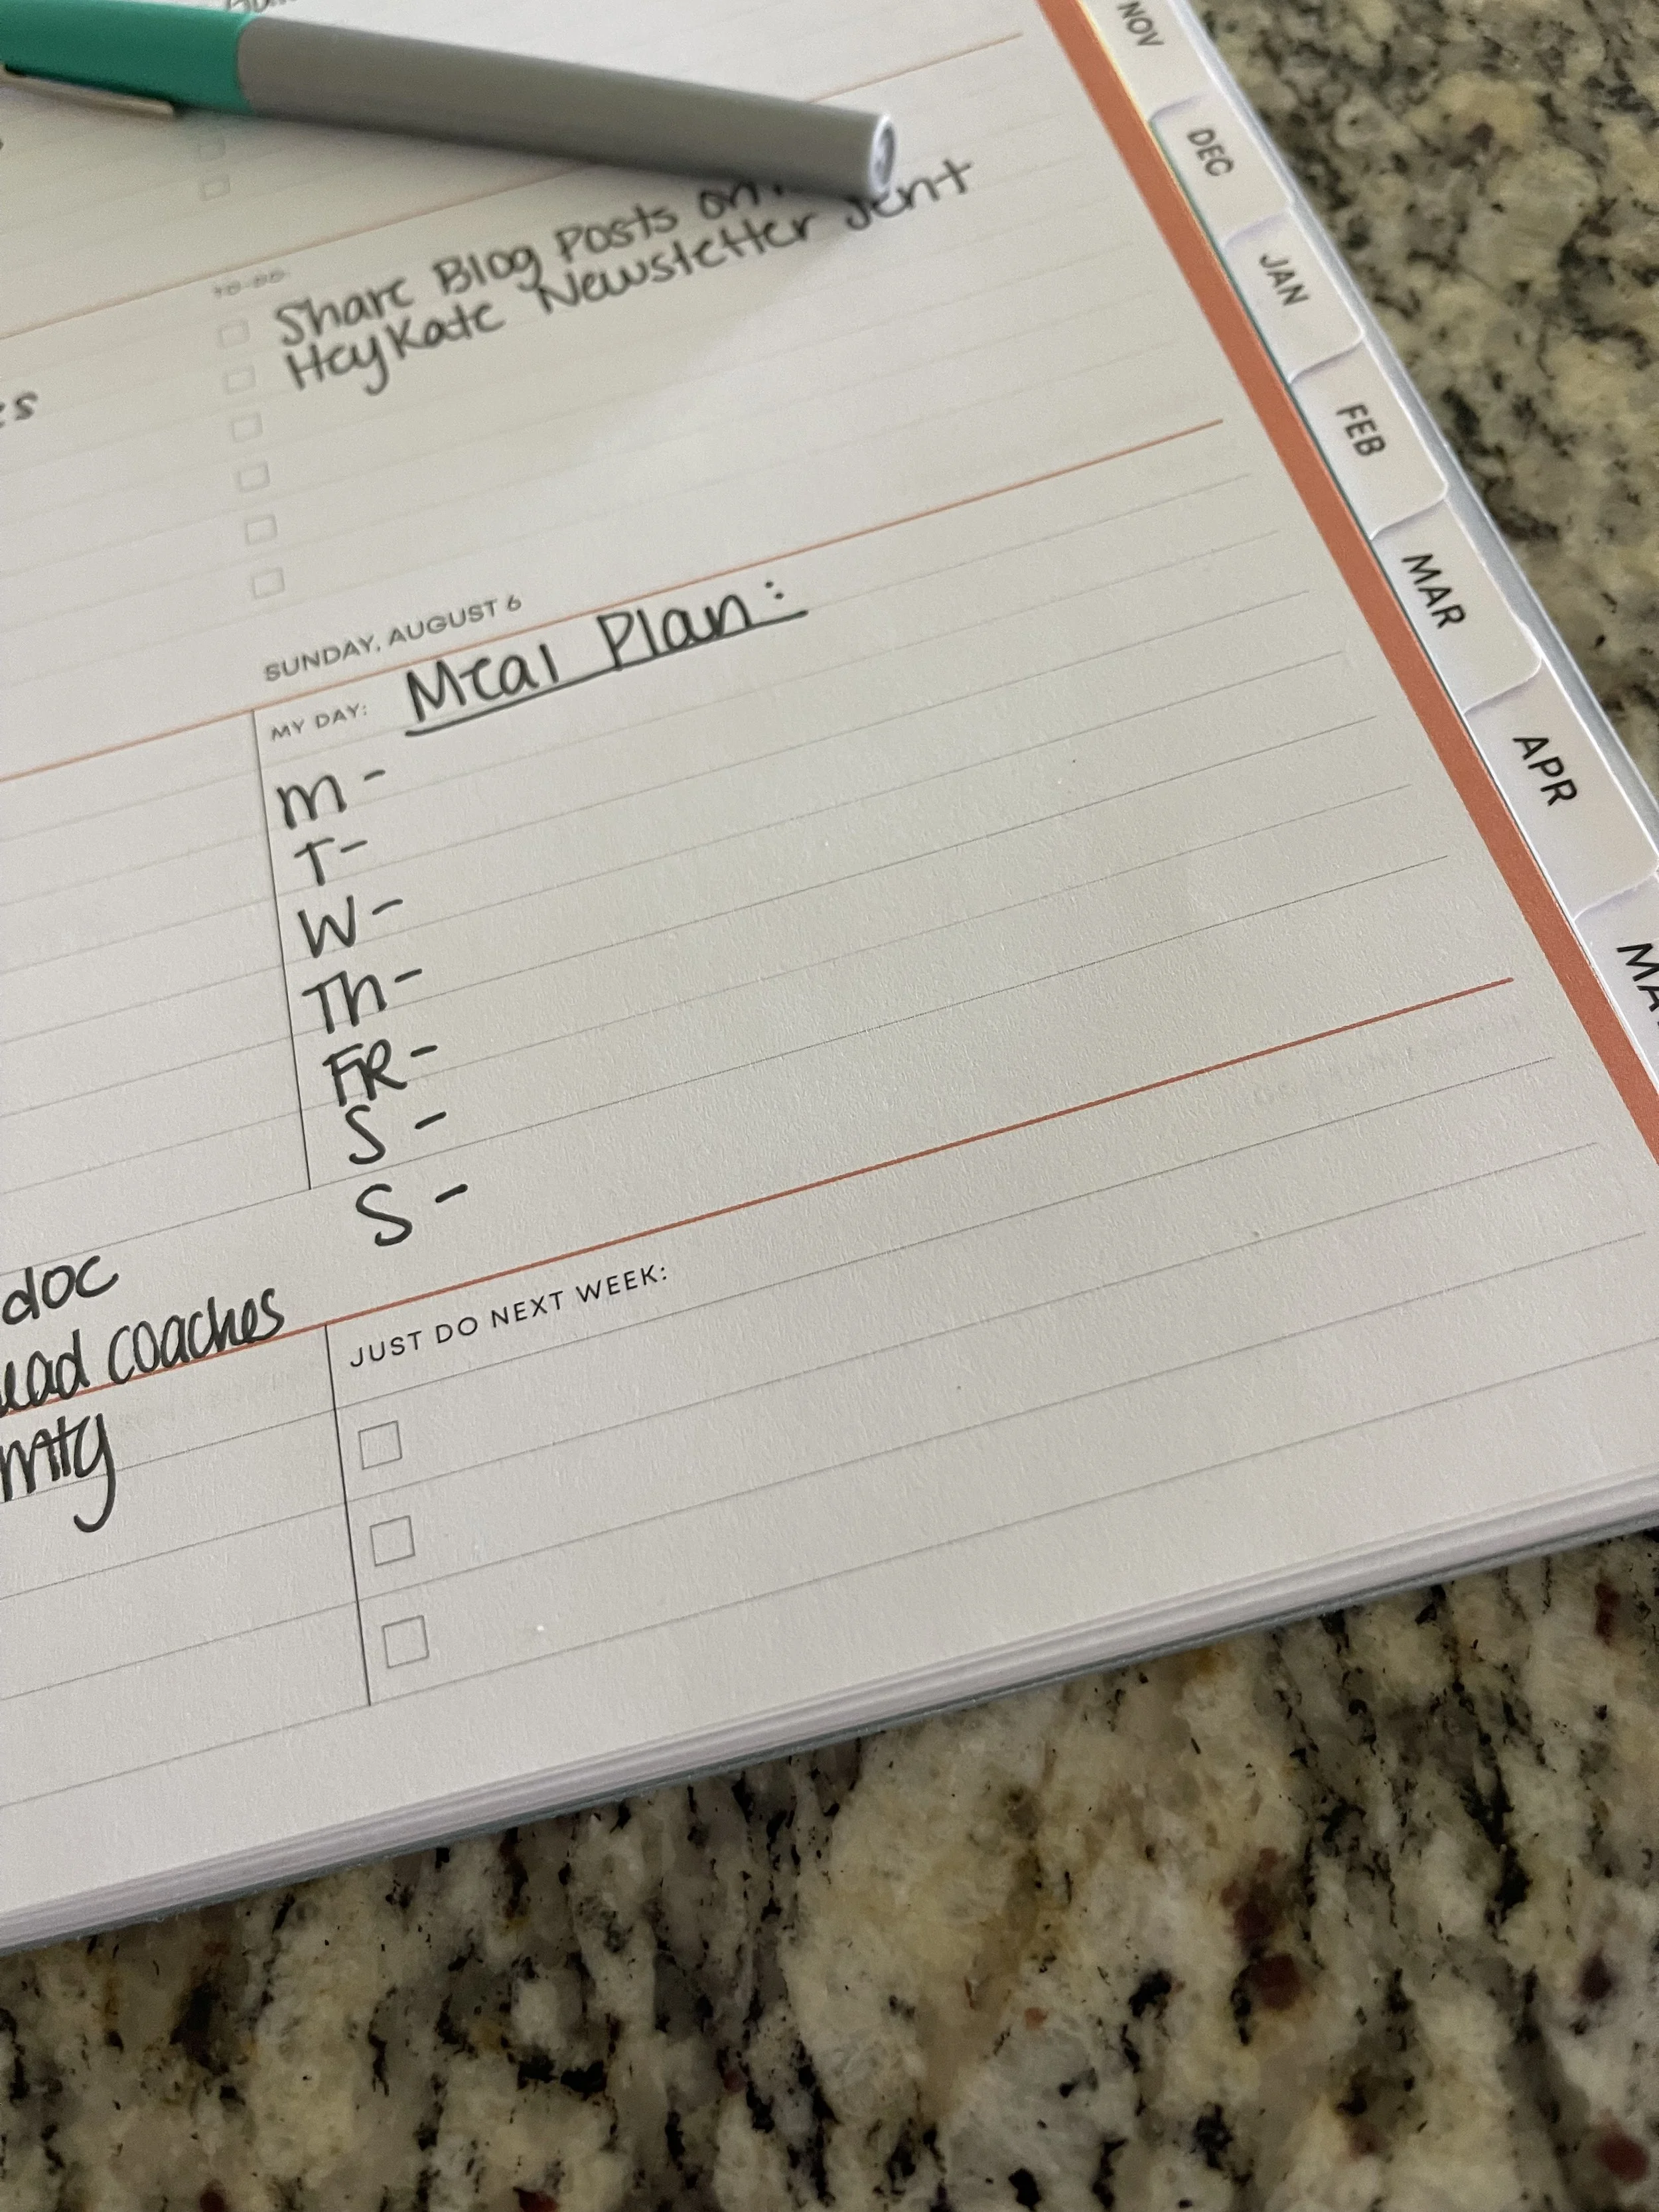 NOV
DEC
JAN
FEB
MAR
APR
TO-DO
Share Blog Posts on
HeyKate Newsletter Sent
es
SUNDAY, AUGUST 6
MY DAY: Meal Plan:
M -
T -
W -
Th -
FR -
S -
S -
doc
coaches
mtg
JUST DO NEXT WEEK: